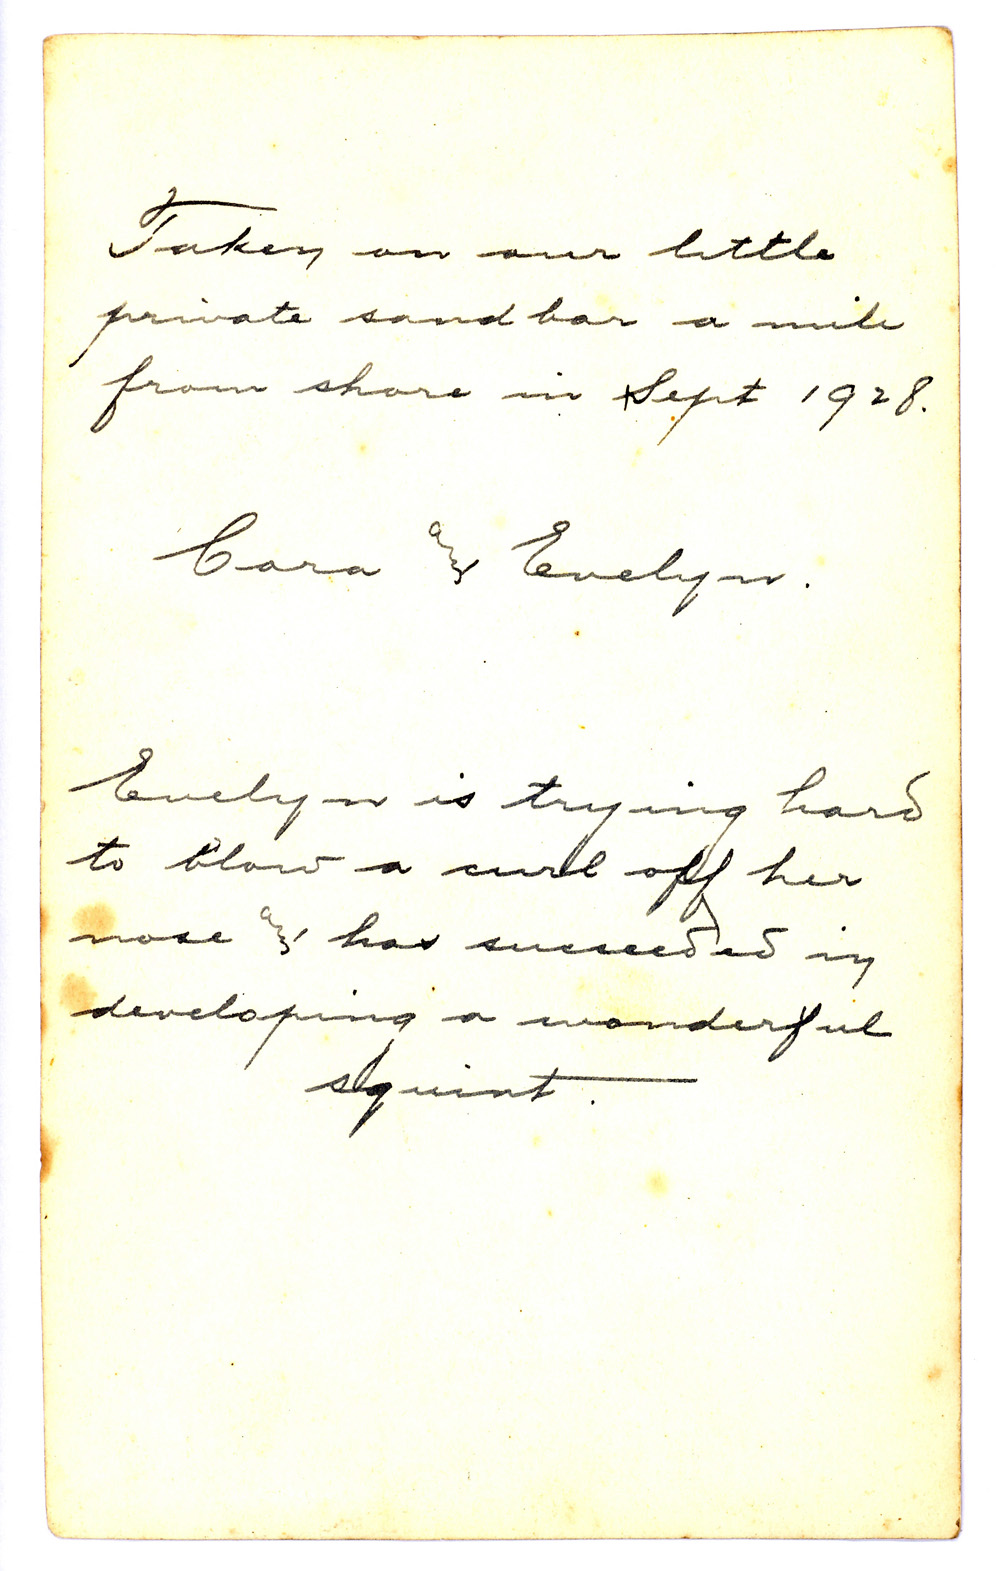 Taken on our little
private sand bar a mile
from shore in Sept 1928.
Cora & Evelyn.
Evelyn is trying hard
to blow a curl off her
nose & has succeeded in
developing a wonderful
squint.